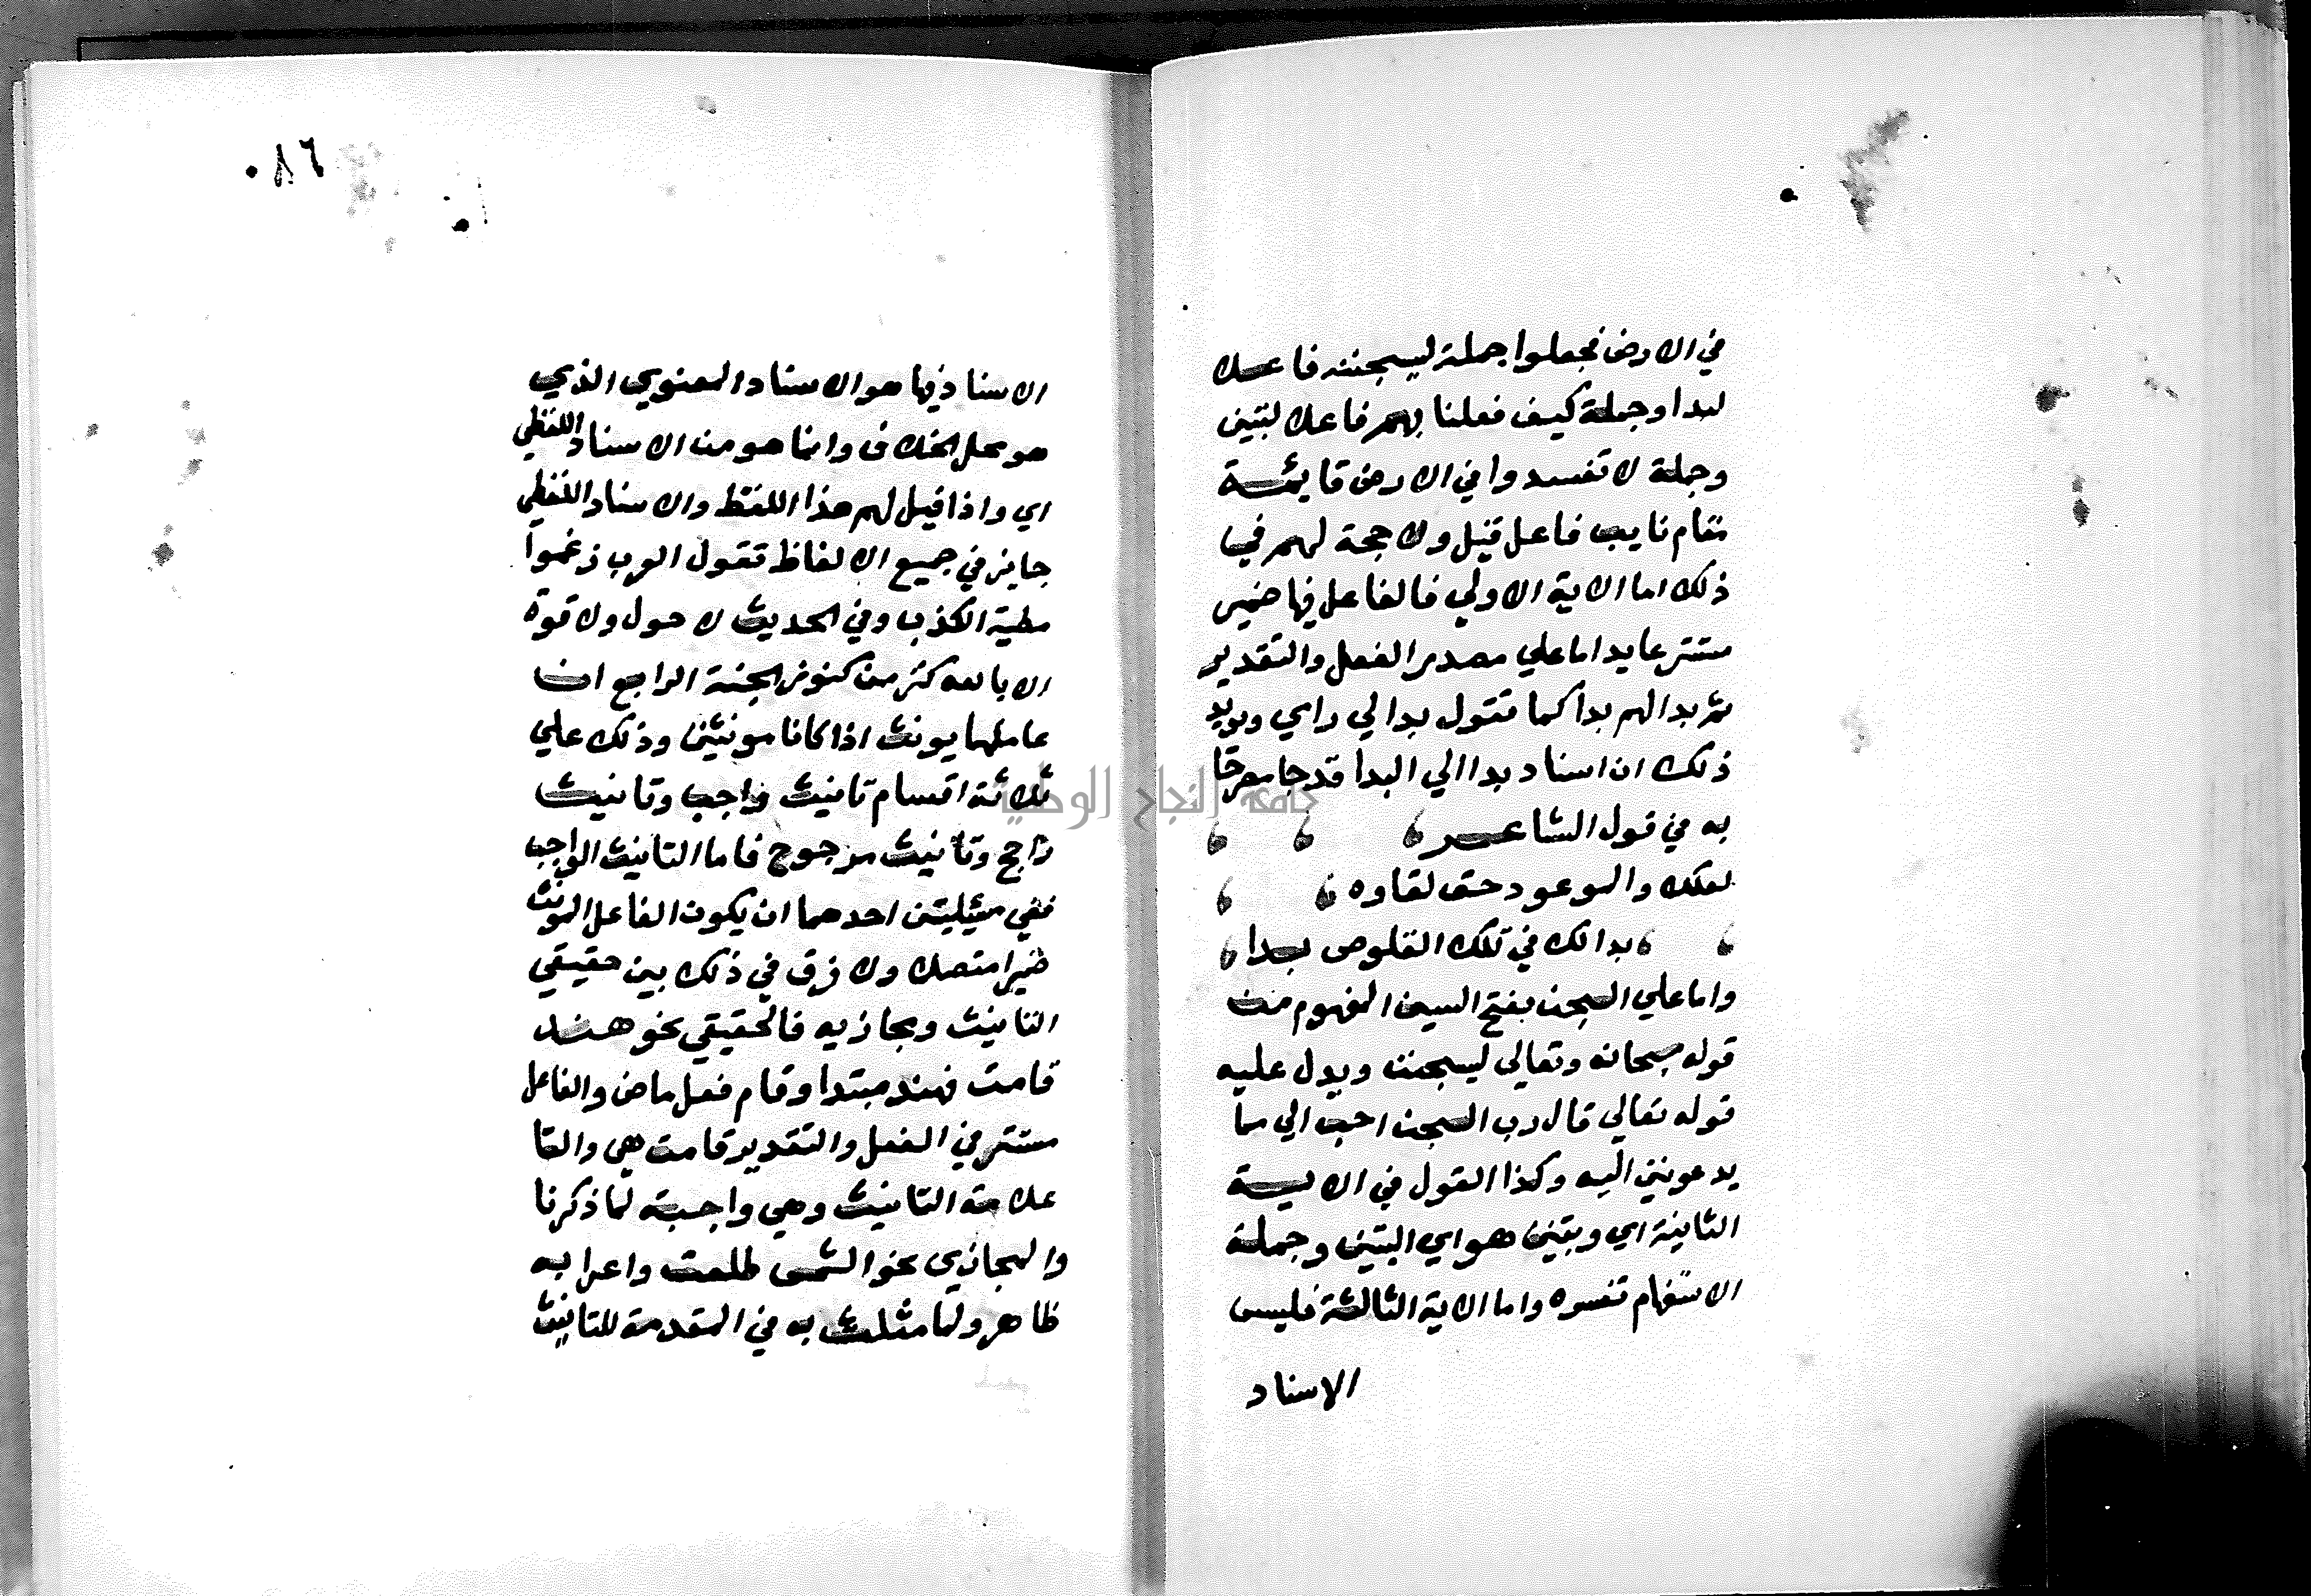 في الارض فجعلوا جملة ليسجننه فاعلا
لبدا وجملة كيف فعلنا بهم فاعلا لتبين
وجملة لا تفسدوا في الارض قايمة
مقام نايب فاعل قيل ولا حجة لهم في
ذلك اما الاية الاولي فالفاعل فيها ضمير
مستتر عايد اما علي مصدر الفعل والتقدير
ثم بدا لهم بدا كما تقول بدا لي راي ويويد
ذلك ان اسناد بدا الي البدا قد جا مصرحا
به في قول الشاعر
لعلك والموعود حق لقاوه
بدا لك في تلك القلوص بدا
واما علي السجن بفتح السين المفهوم من
قوله سبحانه وتعالي ليسجننه ويدل عليه
قوله تعالي قال رب السجن احب الي مما
يدعونني اليه وكذا القول في الاية
الثانية اي وتبين هو اي التبين وجملة
الاستفهام تفسره واما الاية الثالثة فليس
الاسناد
٠٨٦
الاسناد فيها هو الاسناد المعنوي الذي
هو محل الخلاف وانما هو من الاسناد اللفظي
اي واذا قيل لهم هذا اللفظ والاسناد اللفظي
جايز في جميع الالفاظ تقول العرب زعموا
مطية الكذب وفي الحديث لا حول ولا قوة
الا بالله كنز من كنوز الجنة الرابع ان
عاملهما يونث اذا كانا مونثين وذلك علي
ثلاثة اقسام تانيث واجب وتانيث
راجح وتانيث مرجوح فاما التانيث الواجب
ففي مسئلتين احدهما ان يكون الفاعل المونث
ضميرا متصلا ولا فرق في ذلك بين حقيقي
التانيث ومجازيه فالحقيقي نحو هند
قامت فهند مبتدا وقام فعل ماض والفاعل
مستتر في الفعل والتقدير قامت هي والتا
علامة التانيث وهي واجبة لما ذكرنا
والمجازي نحو الشمس طلعت واعرابه
ظاهر ولما مثلت به في المقدمة للتانيث
جامعة النجاح الوطنية